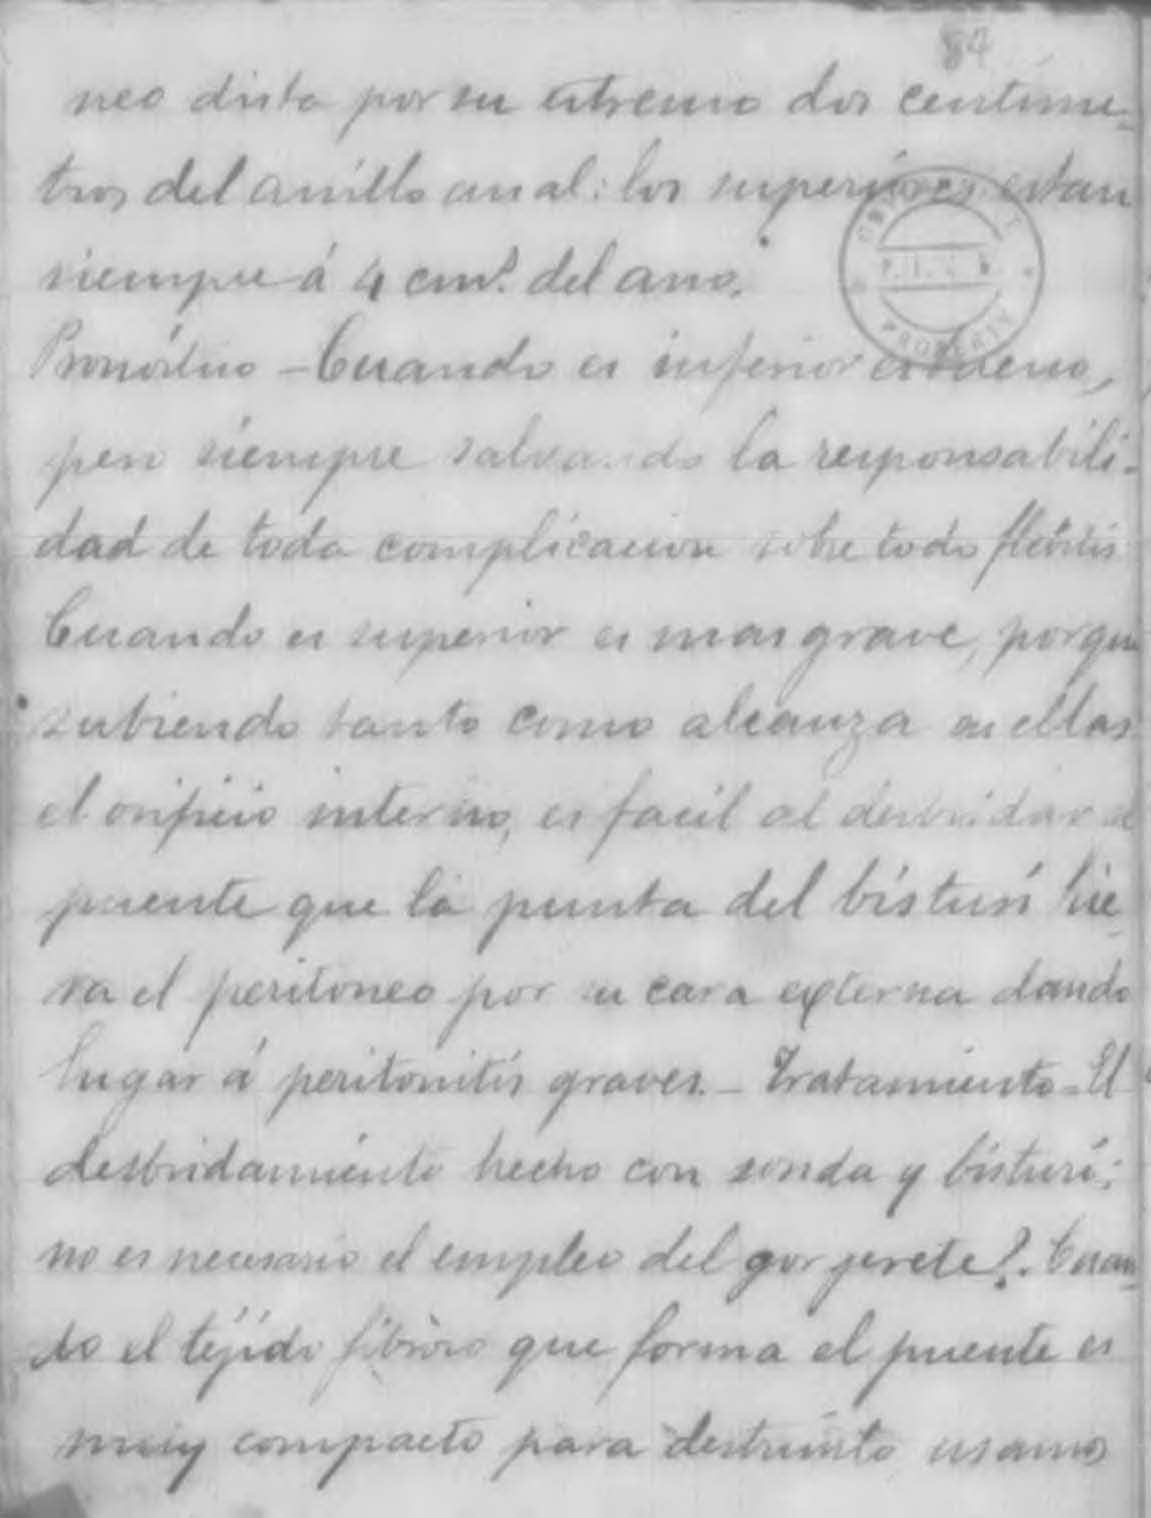 84
neo dista por su extremo dos centime-
tros del anillo anal: los superiores estan
siempre á 4 cm.s del ano.
Pronóstico - Cuando es inferior es bueno,
pero siempre salvando la responsabili-
dad de toda complicacion sobre todo flebitis
Cuando es superior es mas grave, porque
subiendo tanto como alcanza en ellas
el orificio interno, es facil al desbridar el
puente que la punta del bisturí hie-
ra el peritoneo por su cara externa dando
lugar á peritonitis graves. - Tratamiento - El
desbridamiento hecho con sonda y bisturí;
no es necesario el empleo del gorjerete?. Cuan-
do el tejido fibroso que forma el puente es
muy compacto para destruirlo usamos
PROPERTY